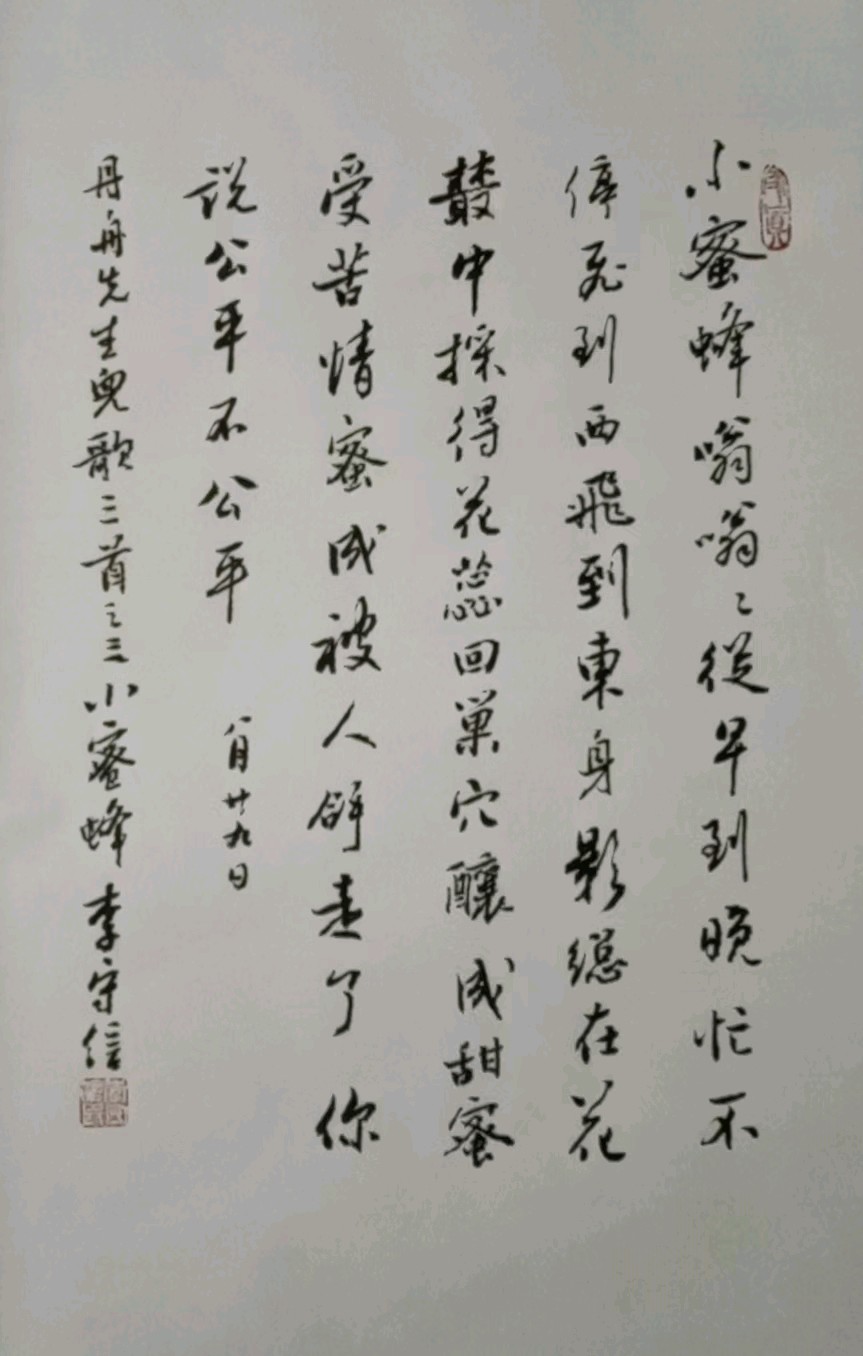 小蜜蜂嗡嗡々從早到晚忙不
停飛到西飛到東身影總在花
叢中採得花蕊回巢穴釀成甜蜜
受苦情蜜成被人辞走了你
説公平不公平
八月廿九日
丹舟先生兒歌三首之三小蜜蜂 李守信